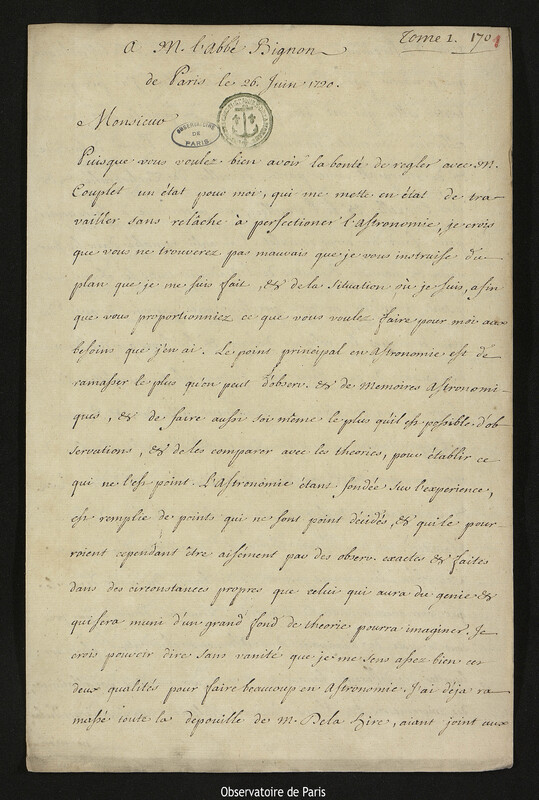 Tome 1. 170
A M. l'Abbé Bignon
de Paris le 26. Juin 1720.
Monsieur
OBSERVATOIRE
DE
PARIS
Puisque vous voulez bien avoir la bonté de regler avec M.
Couplet un état pour moi, qui me mette en état de tra-
vailler sans relâche à perfectioner l'Astronomie, je crois
que vous ne trouverez pas mauvais que je vous instruise du
plan que je me suis fait, & de la situation où je suis, afin
que vous proportionniez ce que vous voulez faire pour moi aux
besoins que j'en ai. Le point principal en Astronomie est de
ramasser le plus qu'on peut d'observ. & de Memoires Astronomi-
ques, & de faire aussi soi même le plus qu'il est possible d'ob
servations, & de les comparer avec les theories, pour établir ce
qui ne l'est point. L'Astronomie étant fondée sur l'experience,
est remplie de points qui ne sont point décidés, & qui le pour
roient cependant être aisément par des observ. exactes & faites
dans des circonstances propres que celui qui aura du genie &
qui sera muni d'un grand fond de theorie pourra imaginer. Je
crois pouvoir dire sans vanité que je me sens assez bien ces
deux qualités pour faire beaucoup en Astronomie. J'ai déja ra
massé toute la depouille de M. De la Hire, aiant joint aux
Observatoire de Paris